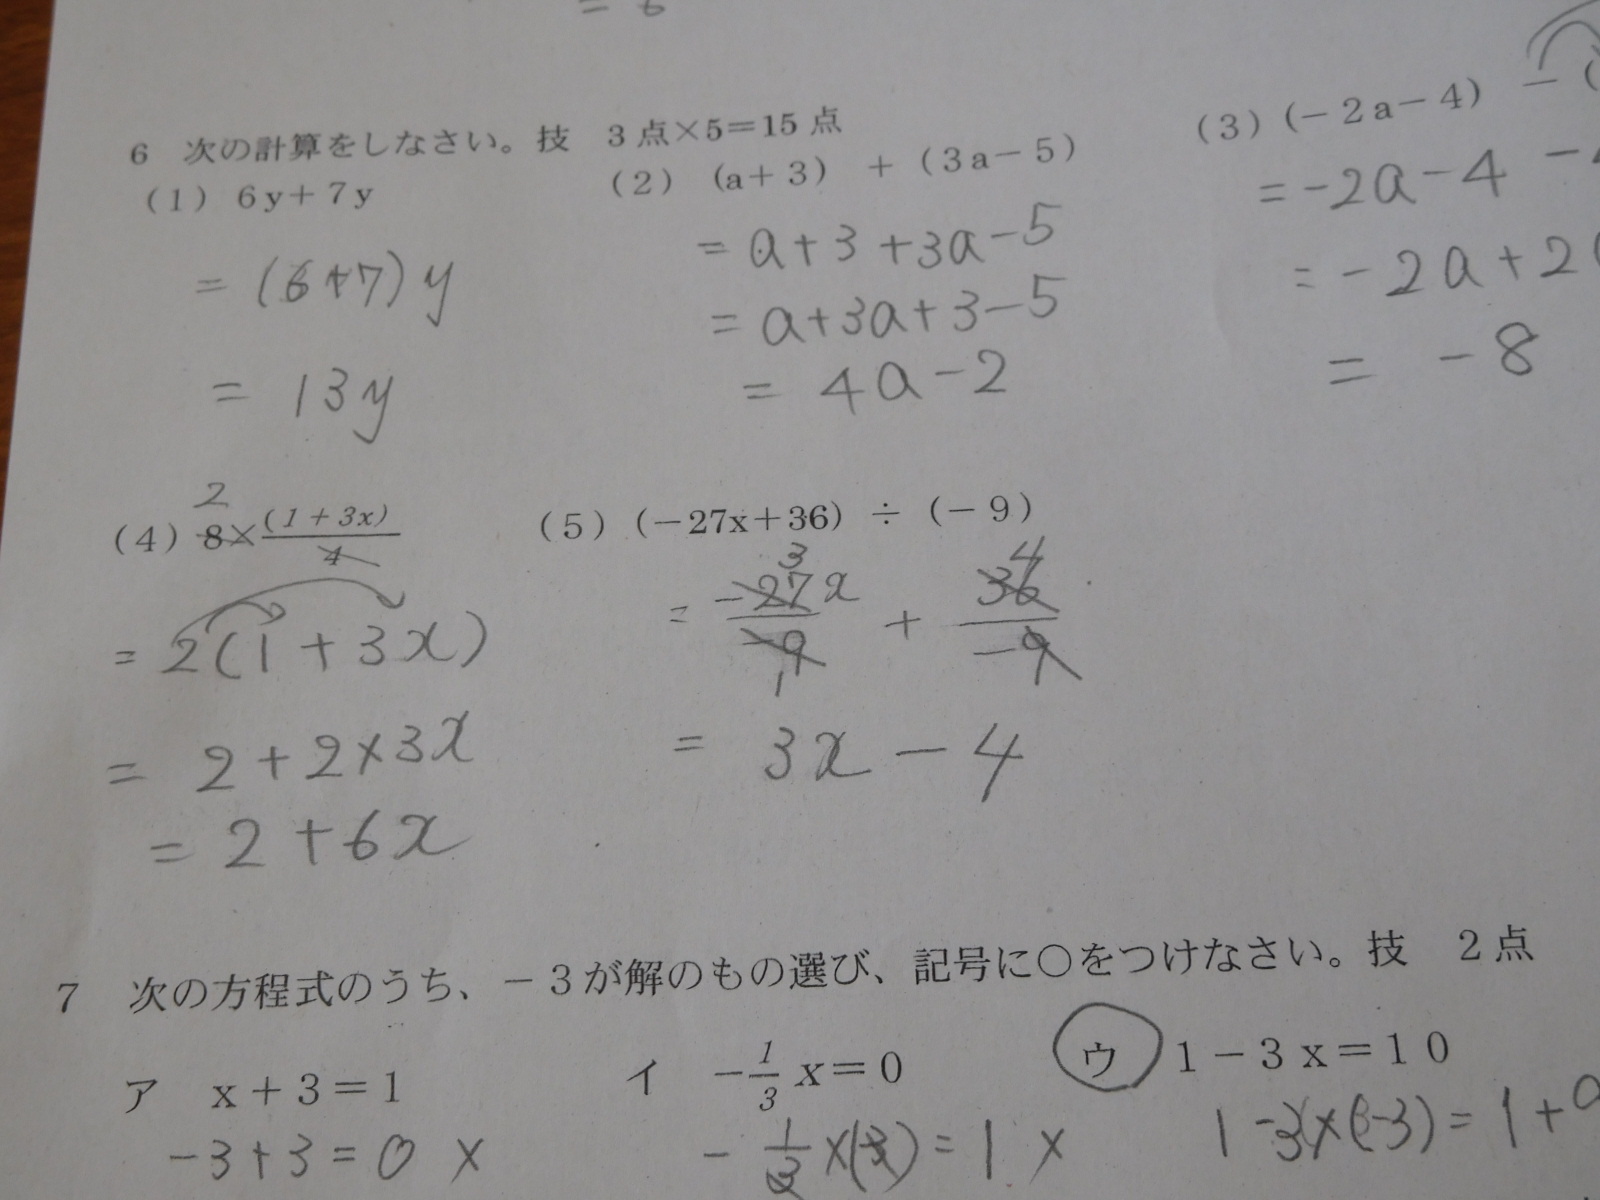 = 6
6 次の計算をしなさい。技 3点×5=15点
(1) 6y+7y
= (6+7)y
= 13y
(2) (a+3) + (3a-5)
= a+3+3a-5
= a+3a+3-5
= 4a-2
(3) (-2a-4) -(
= -2a-4 -
= -2a+2
= -8
(4) 8×(1+3x)/4
2
= 2(1+3x)
= 2+2×3x
= 2+6x
(5) (-27x+36) ÷ (-9)
3 4
= -27x/-9 + 36/-9
1
= 3x-4
7 次の方程式のうち、-3が解のもの選び、記号に○をつけなさい。技 2点
ア x+3=1
-3+3=0 ×
イ -1/3 x=0
-1/3×(-3)=1 ×
ウ 1-3x=10
1-3×(-3)=1+9